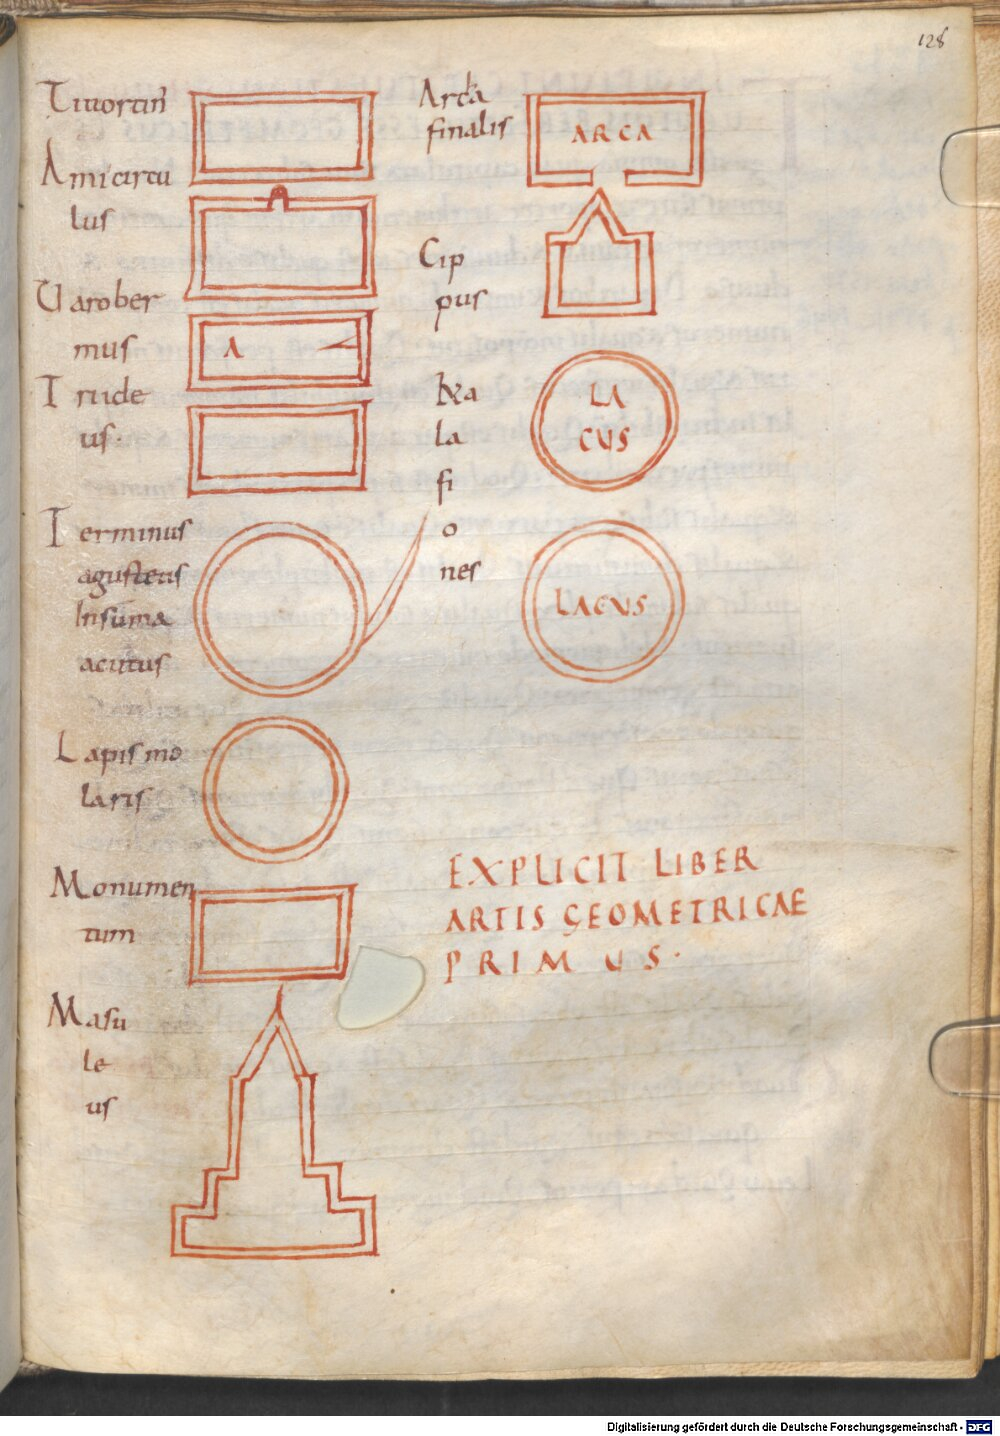 128
Tiuortin
Amicircu
lus
Uarober
mus
A
Trude
us.
Terminus
agusteus
In suma
acutus
Lapis mo
laris
Monumen
tum
Masu
le
us
Arca
finalis
ARCA
Cip
pus
Ka
la
fi
o
nes
LA
CUS
LACUS
EXPLICIT LIBER
ARTIS GEOMETRICAE
PRIMUS.
Digitalisierung gefördert durch die Deutsche Forschungsgemeinschaft - DFG